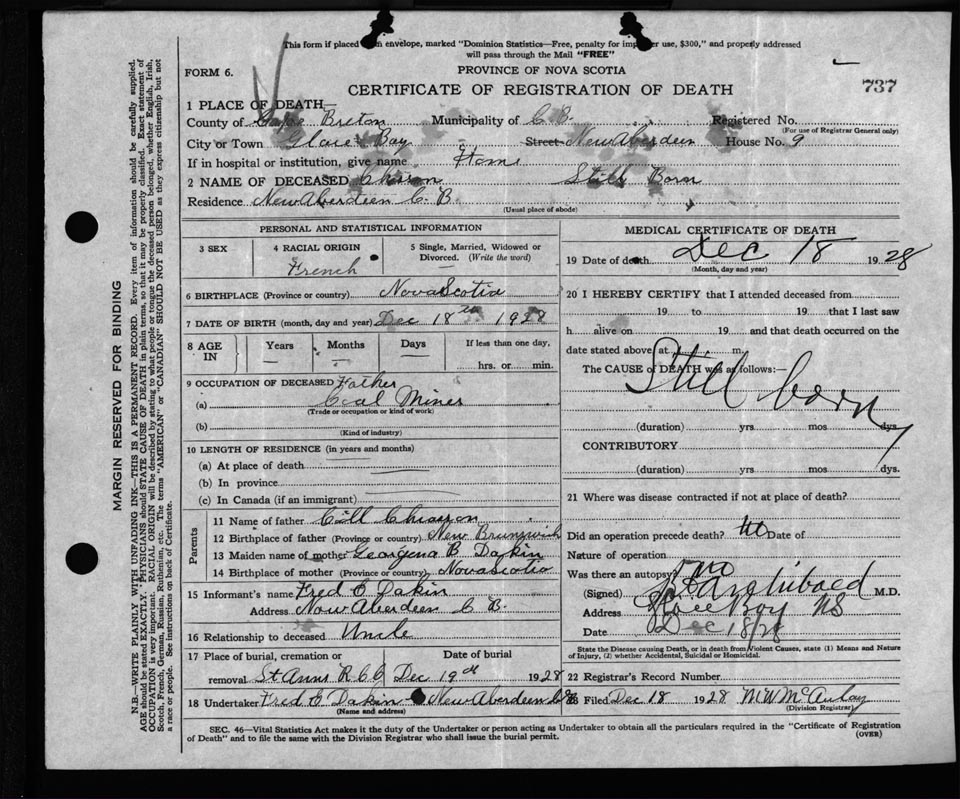 This form if placed in envelope, marked "Dominion Statistics—Free, penalty for improper use, $300," and properly addressed
will pass through the Mail "FREE"
FORM 6.
PROVINCE OF NOVA SCOTIA
737
CERTIFICATE OF REGISTRATION OF DEATH
1 PLACE OF DEATH—
County of Cape Breton Municipality of C B. Registered No.
(For use of Registrar General only)
City or Town Glace Bay Street New Aberdeen House No. 9
If in hospital or institution, give name Home
2 NAME OF DECEASED Chiason Still Born
Residence New Aberdeen C. B.
(Usual place of abode)
PERSONAL AND STATISTICAL INFORMATION
3 SEX
4 RACIAL ORIGIN
French
5 Single, Married, Widowed or
Divorced. (Write the word)
6 BIRTHPLACE (Province or country) Nova Scotia
7 DATE OF BIRTH (month, day and year) Dec 18th 1928
8 AGE
IN
Years
Months
Days
If less than one day,
hrs. or min.
9 OCCUPATION OF DECEASED Father
(a) Coal Miner
(Trade or occupation or kind of work)
(b)
(Kind of industry)
10 LENGTH OF RESIDENCE (in years and months)
(a) At place of death
(b) In province
(c) In Canada (if an immigrant)
Parents
11 Name of father Chiason
12 Birthplace of father (Province or country) New Brunswick
13 Maiden name of mother Georgena B Dakin
14 Birthplace of mother (Province or country) Nova Scotia
15 Informant's name Fred E Dakin
Address New Aberdeen C B.
16 Relationship to deceased Uncle
17 Place of burial, cremation or
removal St Anns R C C
Date of burial
Dec 19th 1928
18 Undertaker Fred E Dakin New Aberdeen C B
(Name and address)
MEDICAL CERTIFICATE OF DEATH
19 Date of death Dec 18 1928
(Month, day and year)
20 I HEREBY CERTIFY that I attended deceased from
19 to 19 that I last saw
h alive on 19 and that death occurred on the
date stated above at m.
The CAUSE of DEATH was as follows:—
Still born
(duration) yrs mos dys.
CONTRIBUTORY
(duration) yrs mos dys.
21 Where was disease contracted if not at place of death?
Did an operation precede death? No Date of
Nature of operation
Was there an autopsy? no
(Signed) Archibald M.D.
Address Glace Bay NS
Date Dec 18/28
State the Disease causing Death, or in death from Violent Causes, state (1) Means and Nature
of Injury, (2) whether Accidental, Suicidal or Homicidal.
22 Registrar's Record Number
Filed Dec 18 1928 M W McAulay
(Division Registrar)
SEC. 46—Vital Statistics Act makes it the duty of the Undertaker or person acting as Undertaker to obtain all the particulars required in the "Certificate of Registration
of Death" and to file the same with the Division Registrar who shall issue the burial permit.
(OVER)
MARGIN RESERVED FOR BINDING
N.B.—WRITE PLAINLY WITH UNFADING INK—THIS IS A PERMANENT RECORD. Every item of information should be carefully supplied.
AGE should be stated EXACTLY. PHYSICIANS should STATE CAUSE OF DEATH in plain terms, so that it may be properly classified. Exact statement of
OCCUPATION is very important. RACIAL ORIGIN will be described by stating to what people or tongue the deceased person belonged, whether English, Irish,
Scotch, French, German, Russian, Ruthenian, etc. The terms "AMERICAN" or "CANADIAN" SHOULD NOT BE USED as they express citizenship but not
a race or people. See instructions on back of Certificate.